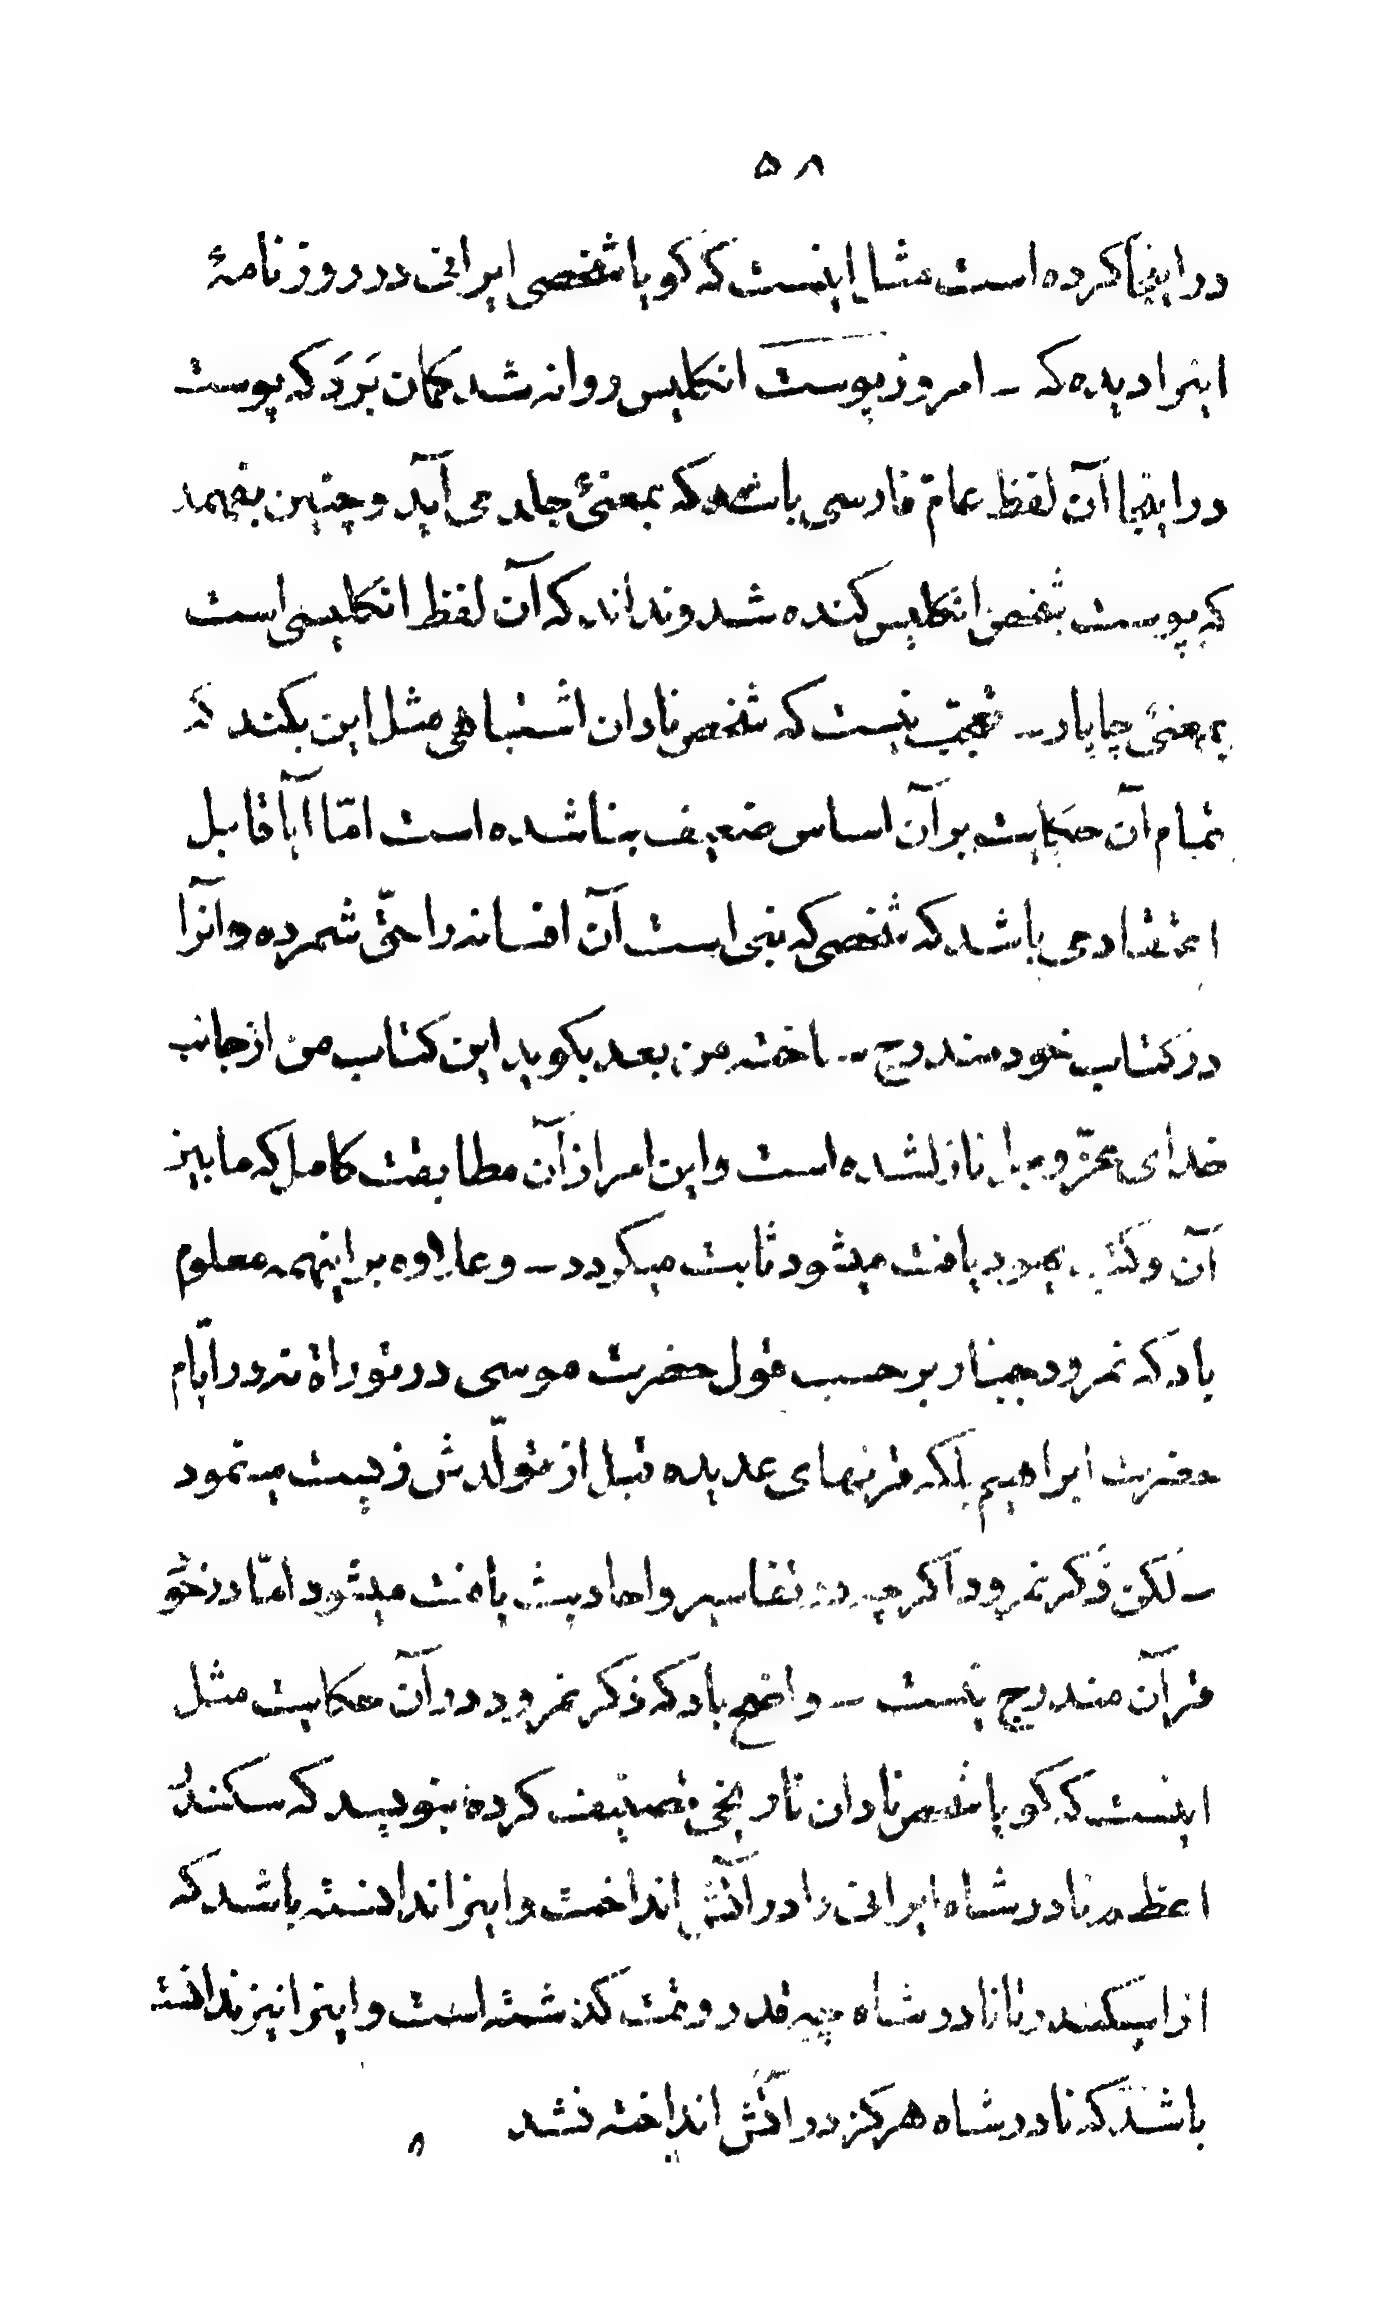 ۵۸
در اینجا کرده است مثل اینست که کویا شخصی ایرانی در روزنامهٔ
اینرا دیده که – امروز پوست انکلیس روانه شد کمان بَرَد که پوست
در اینجا آن لفظ عامّ فارسی باشد که بمعنیٔ جلد می آید و چنین بفهمد
که پوست شخص انکلیس کنده شد و نداند که آن لفظ انکلیسی است
بمعنیٔ چاپار – تعجّب نیست که شخص نادان اشتباهی مثل این بکند که
تمام آن حکایت بر آن اساس ضعیف بنا شده است امّا آیا قابل
اعتقاد می باشد که شخصی که نبی است آن افسانه را حقّ شمرده و آنرا
در کتاب خود مندرج ساخته من بعد بکوید این کتاب من از جانب
خدای عزّ و جل نازلشده است و این امر از آن مطابقت کامل که ما بین
آن و کتب یهود یافت میشود ثابت میکردد – و علاوه بر اینهمه معلوم
باد که نمرود جبّار بر حسب قول حضرت موسی در توراة نه در ایّام
حضرت ابراهیم بلکه قرنهای عدیده قبل از تولّدش زیست مینمود
– لکن ذکر نمرود اکرچه در تفاسیر و احادیث یافت میشود امّا در خود
قرآن مندرج نیست – واضح باد که ذکر نمرود در آن حکایت مثل
اینست که کویا شخص نادان تاریخی تصنیف کرده بنویسد که سکندر
اعظم نادر شاه ایرانی را در آتش انداخت و اینرا ندانسته باشد که
از اسکندر تا نادر شاه چه قدر وقت کذشته است و اینرا نیز ندانسته
باشد که نادر شاه هرکز در آتش انداخته نشد
۸